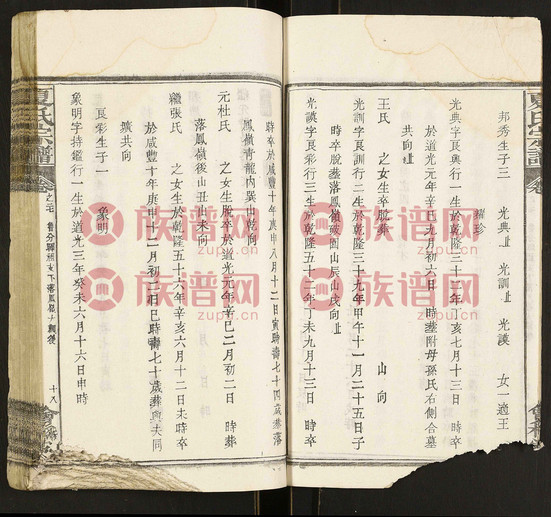 夏氏宗譜
邦秀生子三 光典止 光訓止 光謨 女一適王
緒珍
光典字良興行一生於乾隆三十二年丁亥七月十三日
於道光元年辛巳九月初六日 時葬附母孫氏右側合墓
共向止
王氏 之女生卒脫葬 山 向
光訓字良訓行二生於乾隆三十九年甲午十一月二十五日子
時卒脫葬落鳳嶺 山辰山戌向止
光謨字良彩行三生於乾隆五十二年丁未九月十三日 時卒
時卒於咸豐十年庚申八月十二日寅時壽七十四歲葬落
鳳嶺青龍內巽山乾向
元杜氏 之女生脫卒於道光元年辛巳二月初二日 時葬
落鳳嶺後山丑山未向
繼張氏 之女生於乾隆五十六年辛亥六月十二日未時卒
於咸豐十年庚申十二月初二日巳時壽七十歲葬與夫同
壙共向
良彩生子一 象明
象明字持鑑行一生於道光三年癸未六月十六日申時
夏氏宗譜
卷之七
十八
會稽堂
族谱网
www.zupu.cn